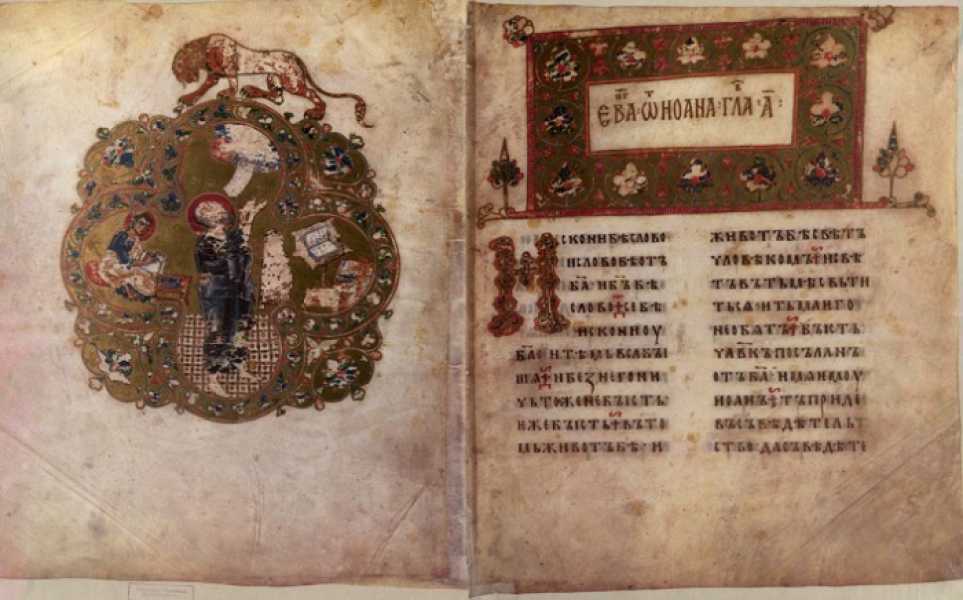 ЕВА·ѠИОАНА·ГЛА·А҃:
ИСКОНИБѢСЛОВО
ИСЛОВОБѢОТЪ
Б҃АИБ҃ЪБѢ
СЛОВОСЕБѢ
ИСКОНИОУ
Б҃АИТѢМЬВСАБЫ
ШѦИБЕЗНЕГОНИ
ЧЬТОЖЕНЕБЫСТЬ
ИЖЕБЫСТЬВЪТО
МЬЖИВОТЪБѢ·И
ЖИВОТЪБѢСВѢТЪ
ЧЛОВѢКОМЪИСВѢ
ТЪВЪТЬМѢСВЬТИ
ТЬСѦИТЬМАѤГО
НЕОБѦТЪБЫСТЬ
ЧЛ҃ВКЪПОСЪЛАНЪ
ОТЪБ҃АИМѦѤМОУ
ИОАНЪТЪПРИДЕ
ВЪСЪВѢДѢТЕЛЬ
СТВОДАСЪВѢДѢТЕ